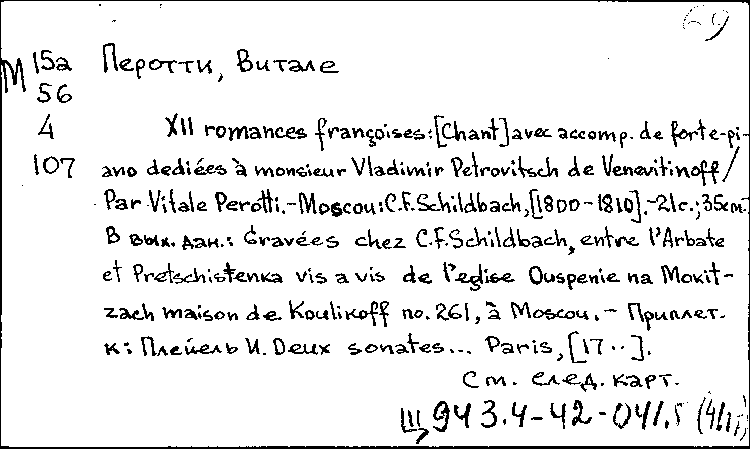 69
М 15а Перотти, Витале
56
4 XII romances françoises: [Chant] avec accomp. de forte-pi-
107 ano dediées à monsieur Vladimir Petrovitsch de Venevitinoff /
Par Vitale Perotti.-Moscou: C.F. Schildbach, [1800-1810].-21с.; 35см.
В вых. дан.: Gravées chez C.F. Schildbach, entre l'Arbate
et Pretschistenka vis a vis de l'eglise Ouspenie na Mokit-
zach maison de Koulikoff no. 261, à Moscou. - Приплет.
к: Плейель И. Deux sonates... Paris, [17··].
См. след. карт.
Щ 943.4-42-041.5